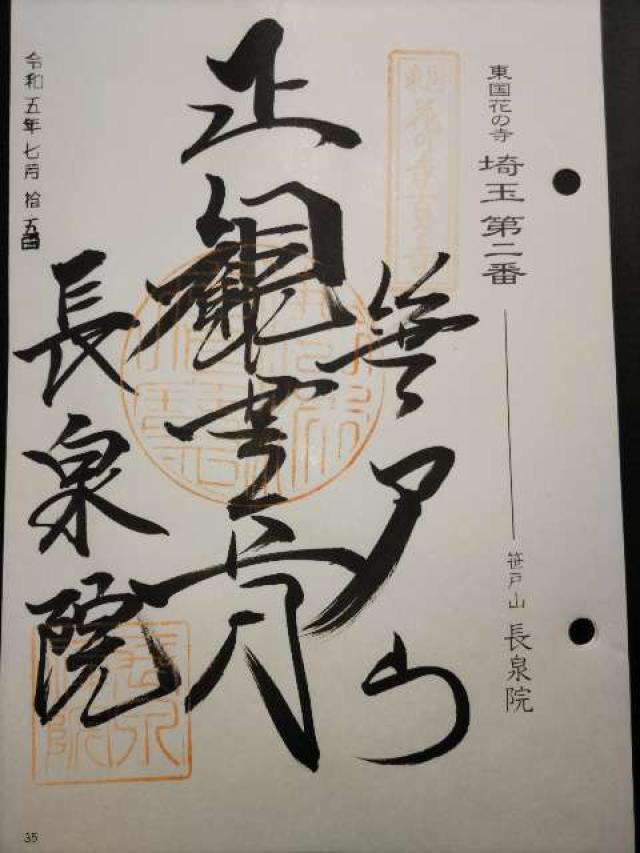 東国花の寺 埼玉 第二番 笹戸山 長泉院
東国
花の寺百ヶ寺
笹戸山
正観世音
長泉院
令和五年七月拾五日
35